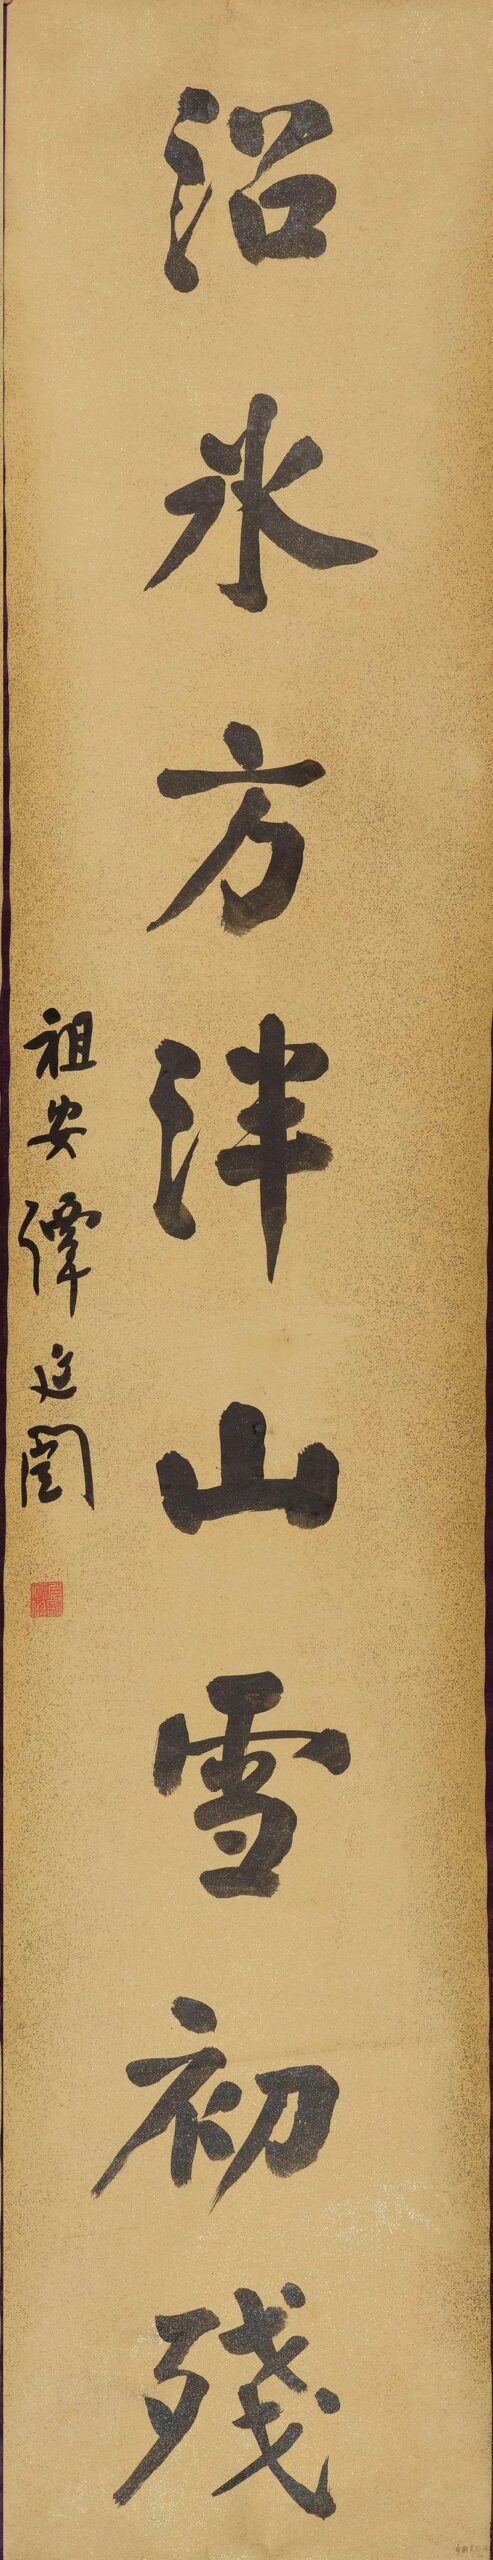 沼氷方泮山雪初殘
祖安譚延闓